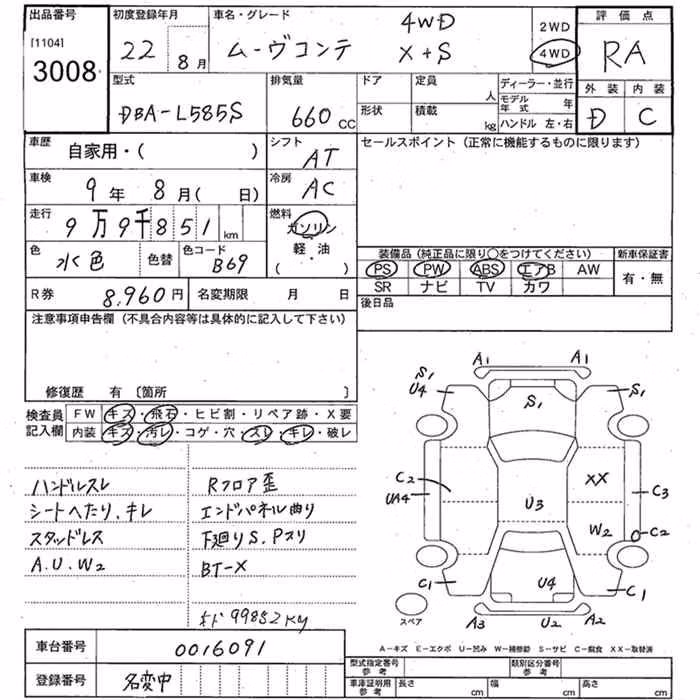 出品番号 初度登録年月 車名・グレード 4WD 2WD 評価点
[1104] 22年 8月 ムーヴコンテ X+S 4WD RA
3008
型式 排気量 ドア 定員 人 ディーラー・並行 外装 内装
DBA-L585S 660cc 形状 積載 kg モデル年式 年 D C
ハンドル 左・右
車歴 自家用・( ) シフト AT セールスポイント(正常に機能するものに限ります)
車検 9年 8月( 日) 冷房 AC
走行 9万9千851km 燃料 ガソリン
軽・油
( )
色 水色 色替 色コード B69 装備品(純正品に限り○をつけてください) 新車保証書
PS PW ABS エアB AW 有・無
R券 8,960円 名変期限 月 日 SR ナビ TV カワ
後日品
注意事項申告欄(不具合内容等は具体的に記入して下さい)
修復歴 有 〔箇所 〕
検査員記入欄 FW キズ・飛石・ヒビ割・リペア跡・X要
内装 キズ・汚レ・コゲ・穴・スレ・キレ・破レ
ハンドルスレ Rフロア歪
シートへたり、キレ エンドパネル曲り
スタッドレス 下廻りS.Pスリ
A.U.W2 BT-X
99852KM
A1 A1
S1 U4 S1 S1
C2 UA4 XX C3
U3 W2 C2
C1 U4 C1
スペア A3 U2 A2
車台番号 0016091
A-キズ E-エクボ U-凹み W-補修跡 S-サビ C-腐食 XX-取替済
登録番号 名変中
型式指定番号 参考 類別区分番号 参考
車庫証明用 参考 長さ cm 幅 cm 高さ cm